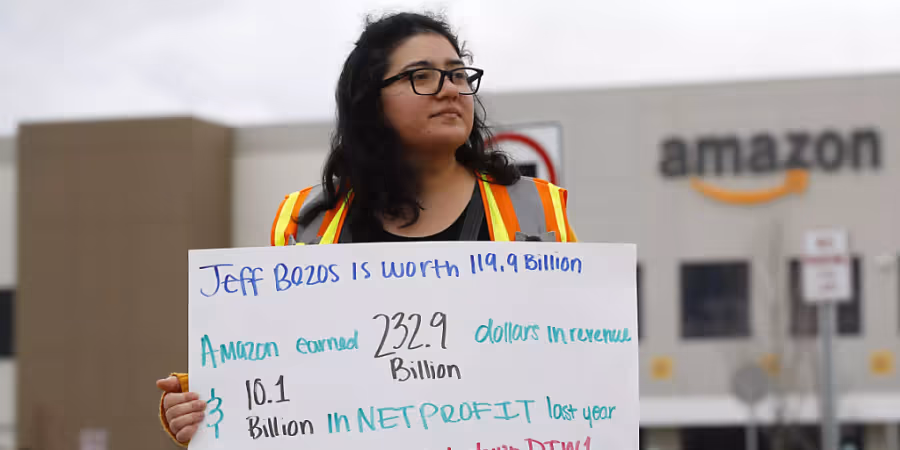 Jeff Bezos is worth 119.9 Billion
Amazon earned 232.9 Billion dollars in revenue
& 10.1 Billion in NET PROFIT last year
DTW1
amazon